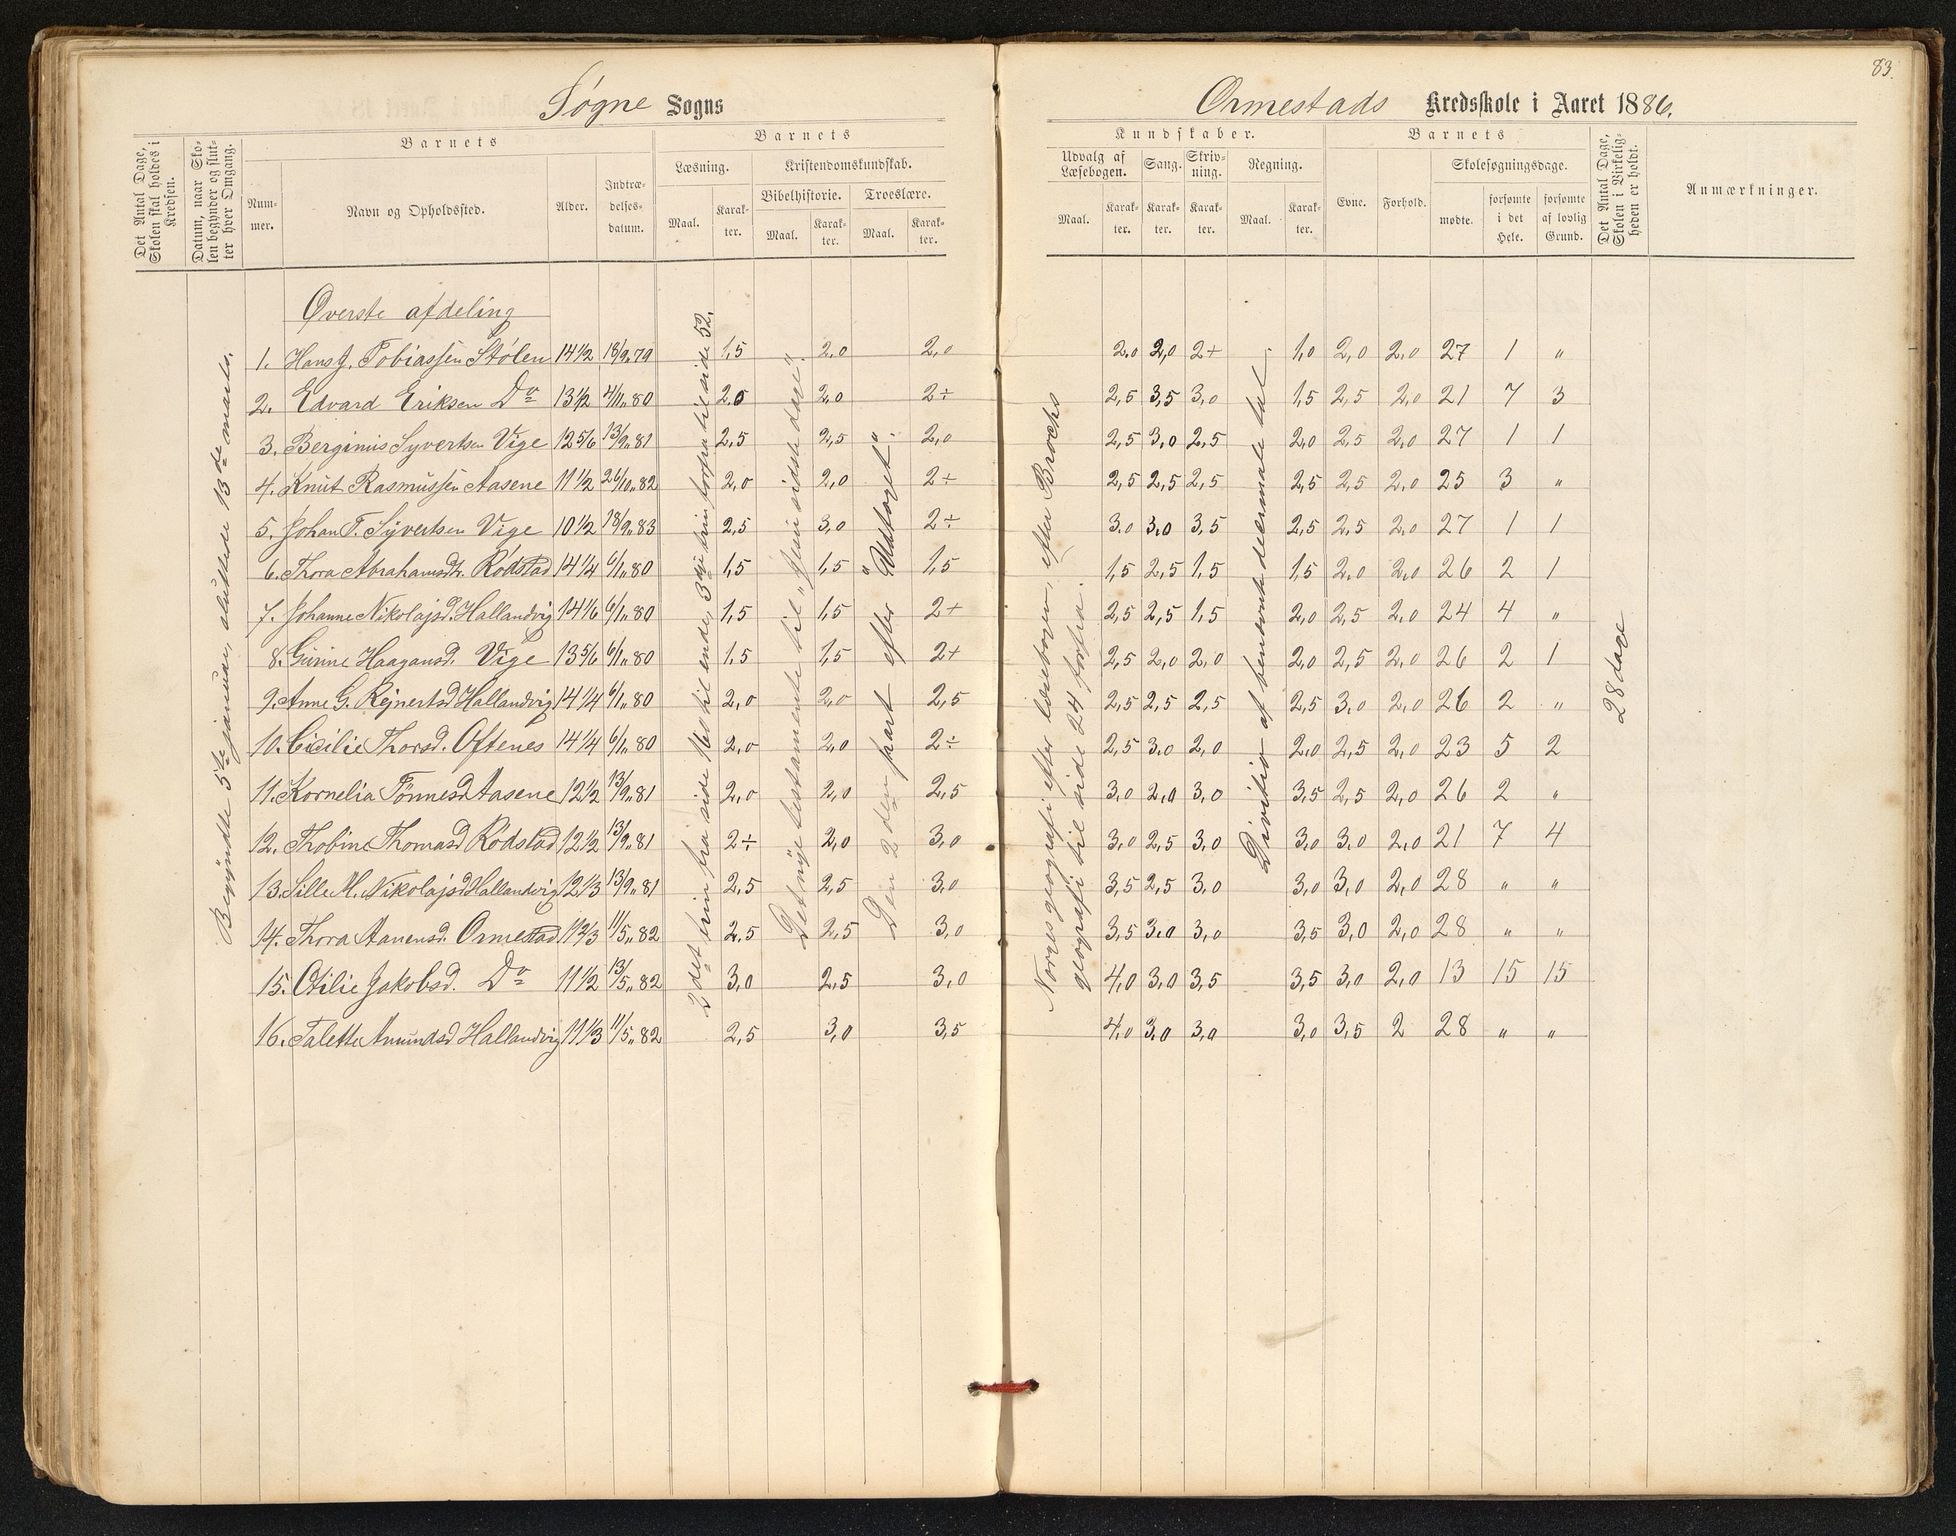 83.
Søgne Sogns
Ormestads Kredsskole i Aaret 1886.
Det Antal Dage, Skolen skal holdes i Kredsen.
Datum, naar Skolen begynder og slutter hver Omgang.
Barnets
Nummer.
Navn og Opholdssted.
Alder.
Indtrædelsesdatum.
Barnets
Læsning.
Maal.
Karakter.
Kristendomskundskab.
Bibelhistorie.
Maal.
Karakter.
Troeslære.
Maal.
Karakter.
Kundskaber.
Udvalg af Læsebogen.
Maal.
Karakter.
Sang.
Karakter.
Skrivning.
Karakter.
Regning.
Maal.
Karakter.
Barnets
Evne.
Forhold.
Skolesøgningsdage.
mødte.
forsømte i det Hele.
forsømte af lovlig Grund.
Det Antal Dage, Skolen i Virkeligheden er holdt.
Anmærkninger.
Begyndte 5te januar, sluttede 13de marts.
Øverste afdeling
1. Hans J. Tobiassen Stølen 14 1/2 18/9 „ 79 1,5 2,0 2,0 2,0 2,0 2+ 1,0 2,0 2,0 27 1 „
2. Edvard Eriksen Do 13 1/2 4/1 „ 80 2,0 2,0 2÷ 2,5 3,5 3,0 1,5 2,5 2,0 21 7 3
3. Berginius Syvertsen Vige 12 5/6 13/9 „ 81 2,5 2,5 2,0 2,5 3,0 2,5 2,0 2,5 2,0 27 1 1
4. Knut Rasmussen Aasene 11 1/2 26/10 „ 82 2,0 2,0 2÷ 2,5 2,5 2,5 2,5 2,5 2,0 25 3 „
5. Johan T. Syvertsen Vige 10 1/2 18/9 „ 83 2,5 3,0 2÷ 3,0 3,0 3,5 2,5 2,5 2,0 27 1 1
6. Thora Abrahamsdtr. Rødstad 14 1/4 6/1 „ 80 1,5 1,5 1,5 1,5 2,5 1,5 1,5 2,0 2,0 26 2 1
7. Johanne Nikolajsd. Hallandvig 14 1/6 6/1 „ 80 1,5 1,5 2+ 2,5 2,5 1,5 2,0 2,5 2,0 24 4 „
8. Gurine Haagansd. Vige 13 5/6 6/1 „ 80 1,5 1,5 2+ 2,5 2,0 2,0 2,0 2,5 2,0 26 2 1
9. Anne G. Rejnertsd Hallandvig 14 1/4 6/1 „ 80 2,0 2,0 2,5 2,5 2,5 2,5 2,5 3,0 2,0 26 2 „
10. Cicilie Thorsd. Oftenes 14 1/4 6/1 „ 80 2,0 2,0 2÷ 2,5 3,0 2,0 2,0 2,5 2,0 23 5 2
11. Kornelia Tønnesd Aasene 12 1/2 13/9 „ 81 2,0 2,0 2,5 3,0 2,0 3,0 3,5 2,5 2,0 26 2 „
12. Thobine Thomasd Rødstad 12 1/2 13/9 „ 81 2÷ 2,0 3,0 3,0 2,5 3,0 3,0 3,0 2,0 21 7 4
13. Sille M. Nikolajsd Hallandvig 12 1/3 13/9 „ 81 2,5 2,5 3,0 3,5 2,5 3,0 3,0 3,0 2,0 28 „ „
14. Thora Aanensd. Ormestad 11 2/3 11/5 „ 82 2,5 2,5 3,0 3,5 3,0 3,0 3,5 3,0 2,0 28 „ „
15. Otilie Jakobsd. Do 11 1/2 13/5 „ 82 3,0 2,5 3,0 4,0 3,0 3,5 3,5 3,0 2,0 13 15 15
16. Talette Amundsd Hallandvig 11 1/3 11/5 „ 82 2,5 3,0 3,5 4,0 3,0 3,0 3,0 3,5 2 28 „ „
2det trin fra side 160 til ende, 3dje trin forfra til side 52.
Det nye testamente til „Jesu sidste dage“.
Den 2den part efter „Udtoget“.
Norges geografi efter læsebogen, efter Brochs
geografi til side 24 forfra.
Division af benævnte decimale tal.
28 dage